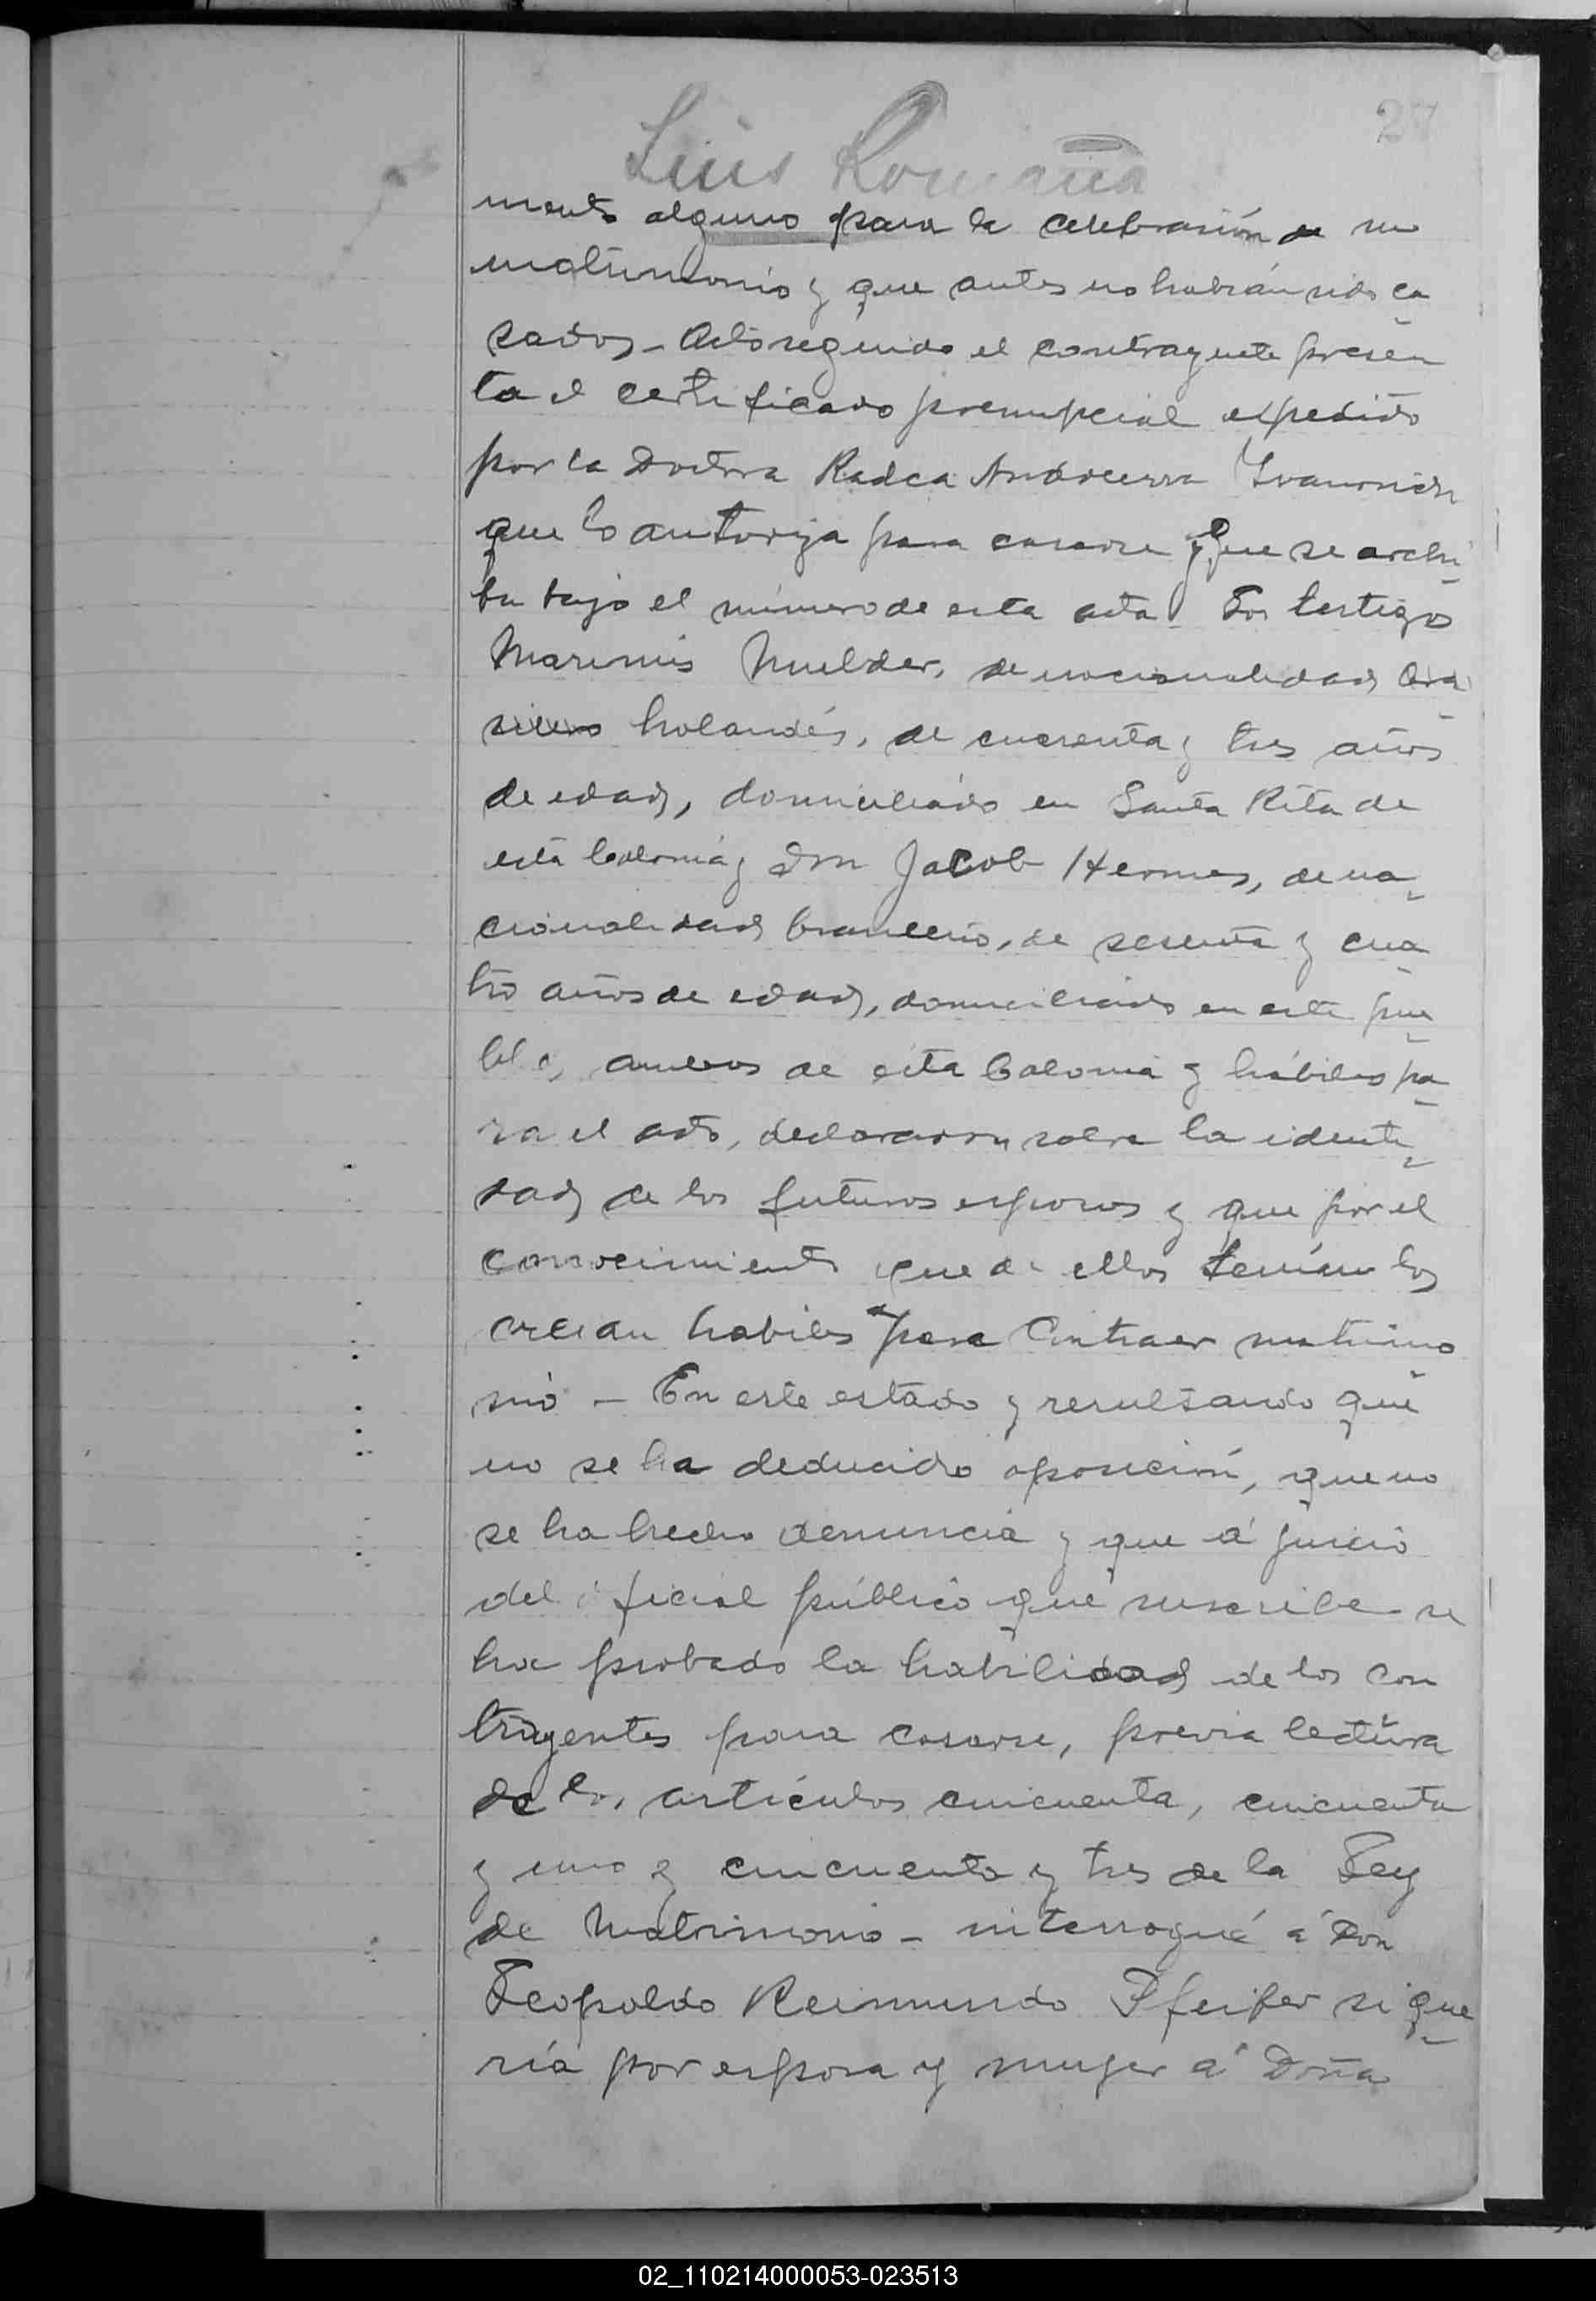 27
Luis Romaña
mento alguno para la celebrasión de su
matrimonio y que antes no habían sido ca
sados_ Acto seguido el contrayente presen
ta el certificado prenupcial espedido
por la Doctora Radca
que lo autoriza para casarse y que se archi
ba bajo el número de esta acta_ Los testigos
Marinus Mulder, de nacionalidad bra
silero holandés, de cuarenta y tres años
de edad, domiciliado en Santa Rita de
esta Colonia y don Jacob Hermes, de na
cionalidad brasilero, de sesenta y cua
tro años de edad, domiciliado en este pue
blo, ambos de esta Colonia y hábiles pa
ra el acto, declararon sobre la identi
dad de los futuros esposos y que por el
conocimiento que de ellos tenían los
creian habiles para contraer matrimo
nio - En este estado y resultando que
no se ha deducido oposición, que no
se ha hecho denuncia y que á juicio
del oficial público que suscribe se
ha probado la habilidad de los con
trayentes para casarse, previa lectura
de los artículos cincuenta, cincuenta
y uno y cincuenta y tres de la Ley
de Matrimonio - interrogué á Don
Leopoldo Reimundo Pfeifer si que
ría por esposa y mujer á Doña
02_110214000053-023513